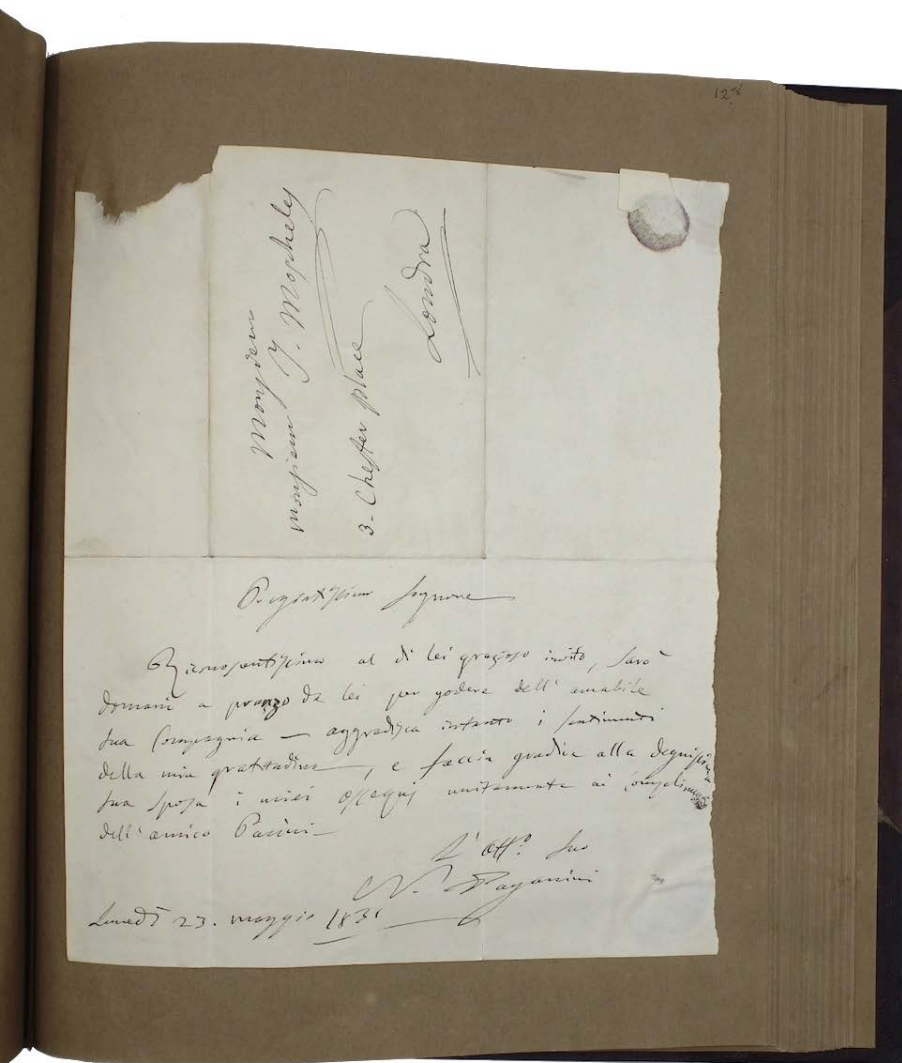 128
Monsieur
Monsieur J. Moscheles
3. Chester place
Londra
Pregiatissimo Signore
Riconoscentissimo al di lei grazioso invito, sarò
domani a pranzo da lei per godere dell'amabile
sua Compagnia — aggradisca intanto i sentimenti
della mia gratitudine, e faccia gradire alla degnissima
sua sposa i miei ossequj unitamente ai complimenti
dell'amico Pacini —
L' Aff.º suo
N. Paganini
Lunedì 23. maggio 1831